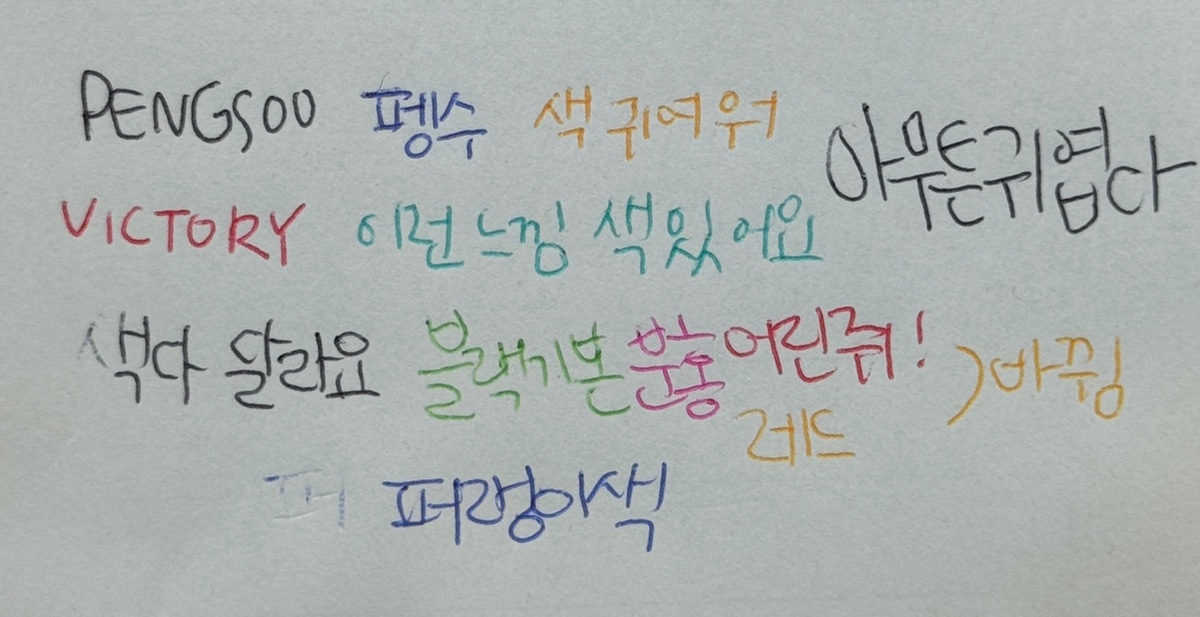 PENGSOO 펭수 색 귀여워
아무튼귀엽다
VICTORY 이런느낌 색있어요
색다 달라요 블랙기본 분홍 어린쥐! 바뀜
레드
퍼 퍼렁이색